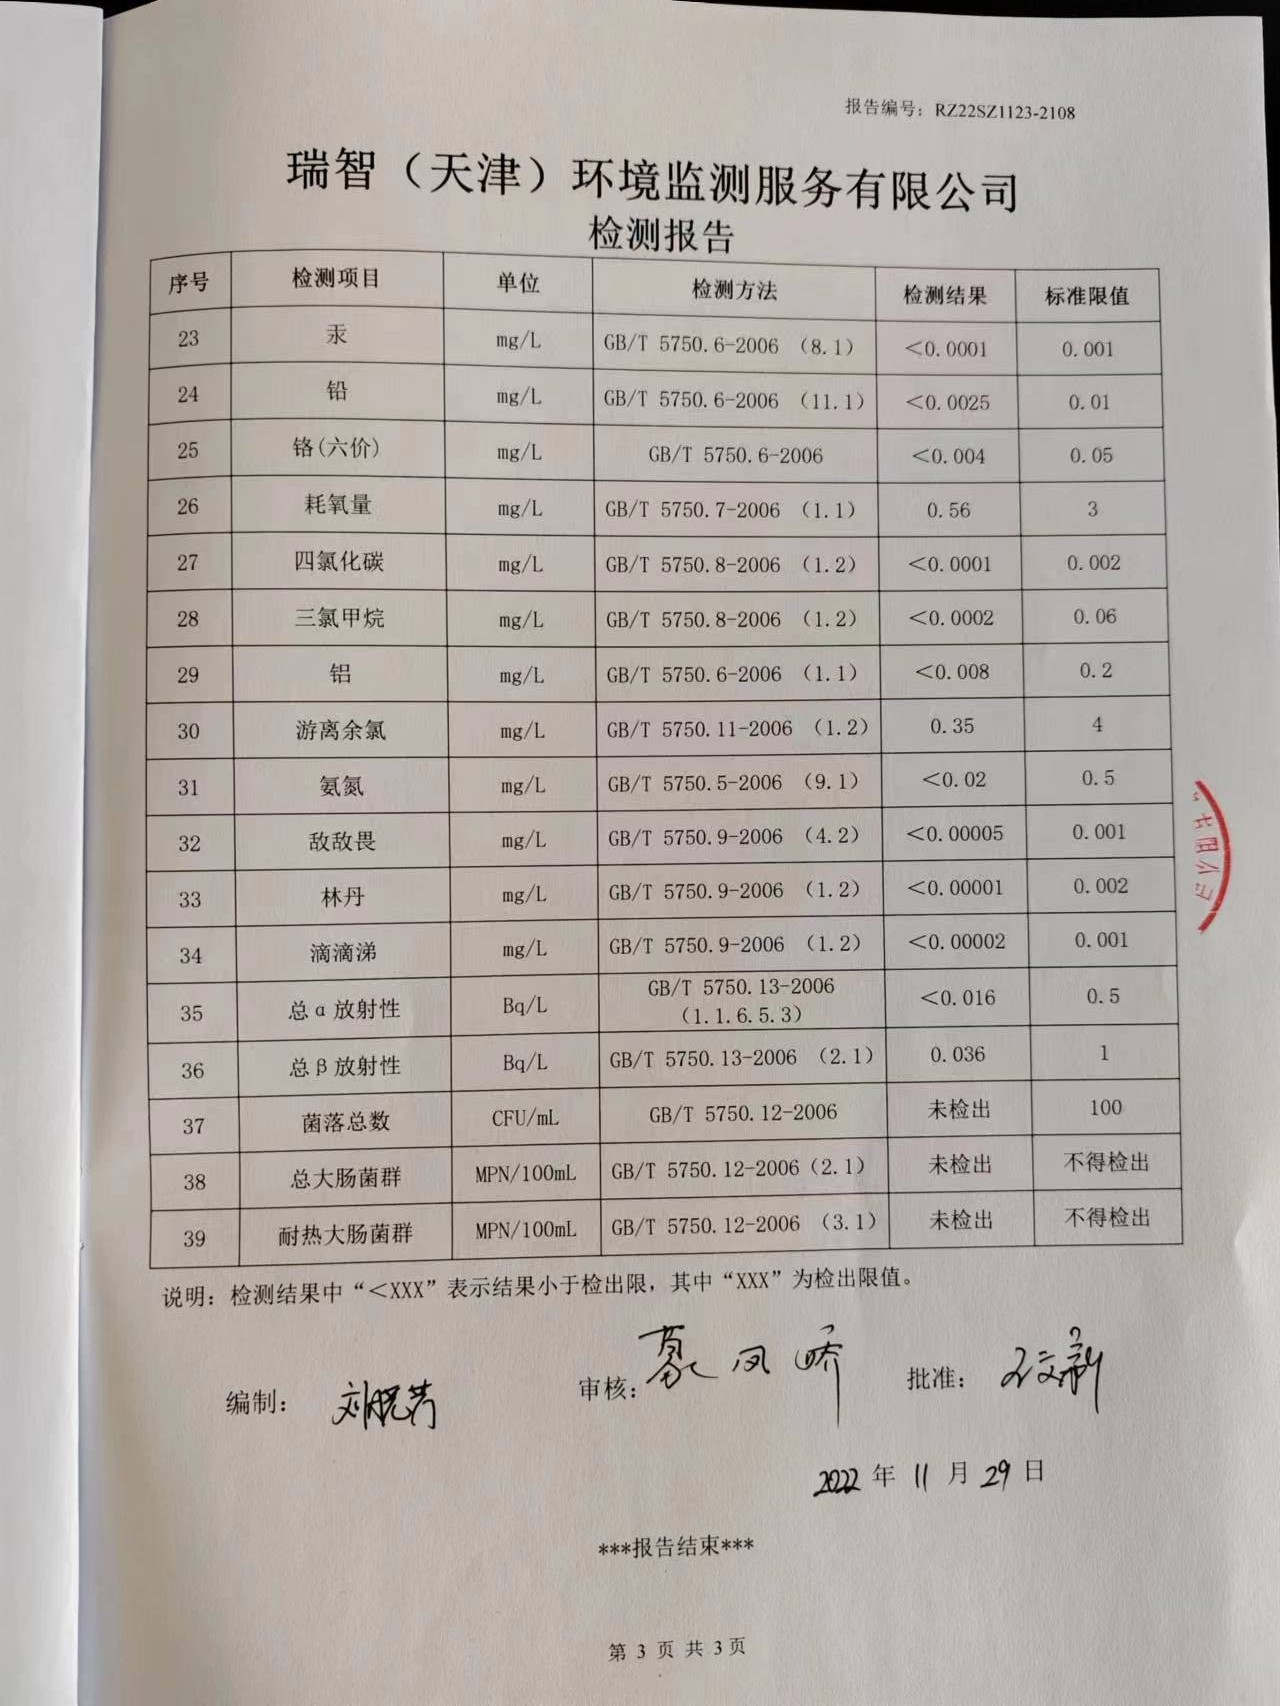 报告编号：RZ22SZ1123-2108
瑞智（天津）环境监测服务有限公司
检测报告
序号 检测项目 单位 检测方法 检测结果 标准限值
23 汞 mg/L GB/T 5750.6-2006 （8.1） ＜0.0001 0.001
24 铅 mg/L GB/T 5750.6-2006 （11.1） ＜0.0025 0.01
25 铬(六价) mg/L GB/T 5750.6-2006 ＜0.004 0.05
26 耗氧量 mg/L GB/T 5750.7-2006 （1.1） 0.56 3
27 四氯化碳 mg/L GB/T 5750.8-2006 （1.2） ＜0.0001 0.002
28 三氯甲烷 mg/L GB/T 5750.8-2006 （1.2） ＜0.0002 0.06
29 铝 mg/L GB/T 5750.6-2006 （1.1） ＜0.008 0.2
30 游离余氯 mg/L GB/T 5750.11-2006 （1.2） 0.35 4
31 氨氮 mg/L GB/T 5750.5-2006 （9.1） ＜0.02 0.5
32 敌敌畏 mg/L GB/T 5750.9-2006 （4.2） ＜0.00005 0.001
33 林丹 mg/L GB/T 5750.9-2006 （1.2） ＜0.00001 0.002
34 滴滴涕 mg/L GB/T 5750.9-2006 （1.2） ＜0.00002 0.001
35 总α放射性 Bq/L GB/T 5750.13-2006 ＜0.016 0.5
（1.1.6.5.3）
36 总β放射性 Bq/L GB/T 5750.13-2006 （2.1） 0.036 1
37 菌落总数 CFU/mL GB/T 5750.12-2006 未检出 100
38 总大肠菌群 MPN/100mL GB/T 5750.12-2006（2.1） 未检出 不得检出
39 耐热大肠菌群 MPN/100mL GB/T 5750.12-2006 （3.1） 未检出 不得检出
说明：检测结果中“＜XXX”表示结果小于检出限，其中“XXX”为检出限值。
编制： 刘晓芳 审核： 凤娇 批准：
2022 年 11 月 29 日
***报告结束***
第 3 页 共 3 页